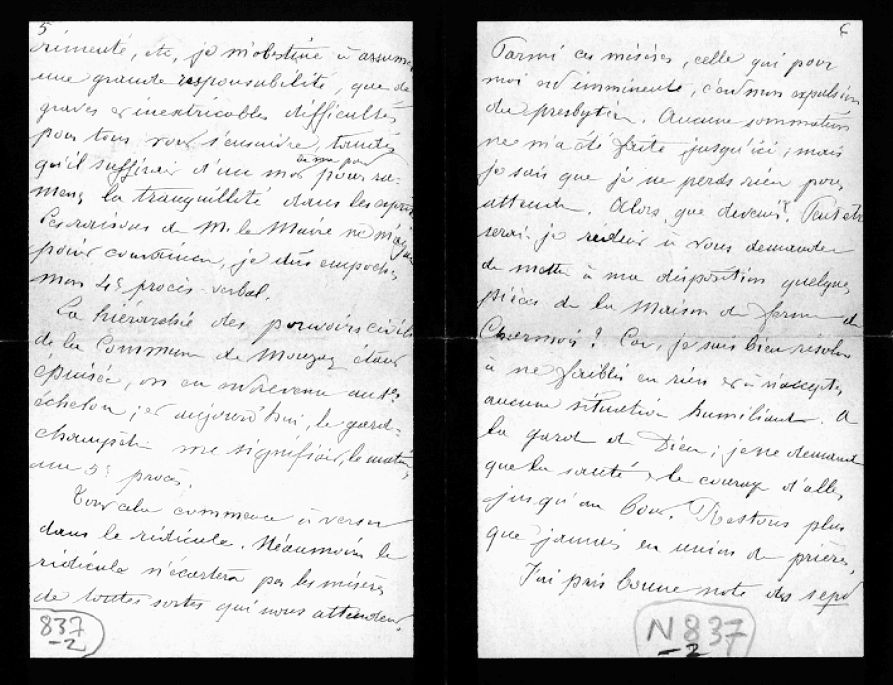 5
rimenté, etc, je m'obstine à assumer
une grande responsabilité, que de
graves et inextricables difficultés
pour tous vont s'ensuivre, tandis
qu'il suffirait d'un mot de ma part pour ra-
mener la tranquillité dans les esprits
Les raisons de M. le Maire ne m'ayant
point convaincu, je dus empocher
mon 4e procès-verbal.
La hiérarchie des pouvoirs civils
de la Commune de Mouzay étant
épuisée, on en est revenu au 1er
échelon; et aujourd'hui, le garde-
champêtre me signifiait, le matin,
un 5e procès.
Tout cela commence à verser
dans le ridicule. Néanmoins le
ridicule n'écartera pas les misères
de toutes sortes qui nous attendent.
837
-2
6
Parmi ces misères, celle qui pour
moi est imminente, c'est mon expulsion
du presbytère. Aucune sommation
ne m'a été faite jusqu'ici; mais
je sais que je ne perds rien pour
attendre. Alors, que devenir? Peut-être
serai-je réduit à vous demander
de mettre à ma disposition quelques
pièces de la maison de ferme de
Charmois? Car, je suis bien résolu
à ne faiblir en rien et à n'accepter
aucune situation humiliante. A
la garde de Dieu; je ne demande
que la santé & le courage d'aller
jusqu'au bout. Restons plus
que jamais en union de prières.
J'ai pris bonne note des sept
N 837
-2